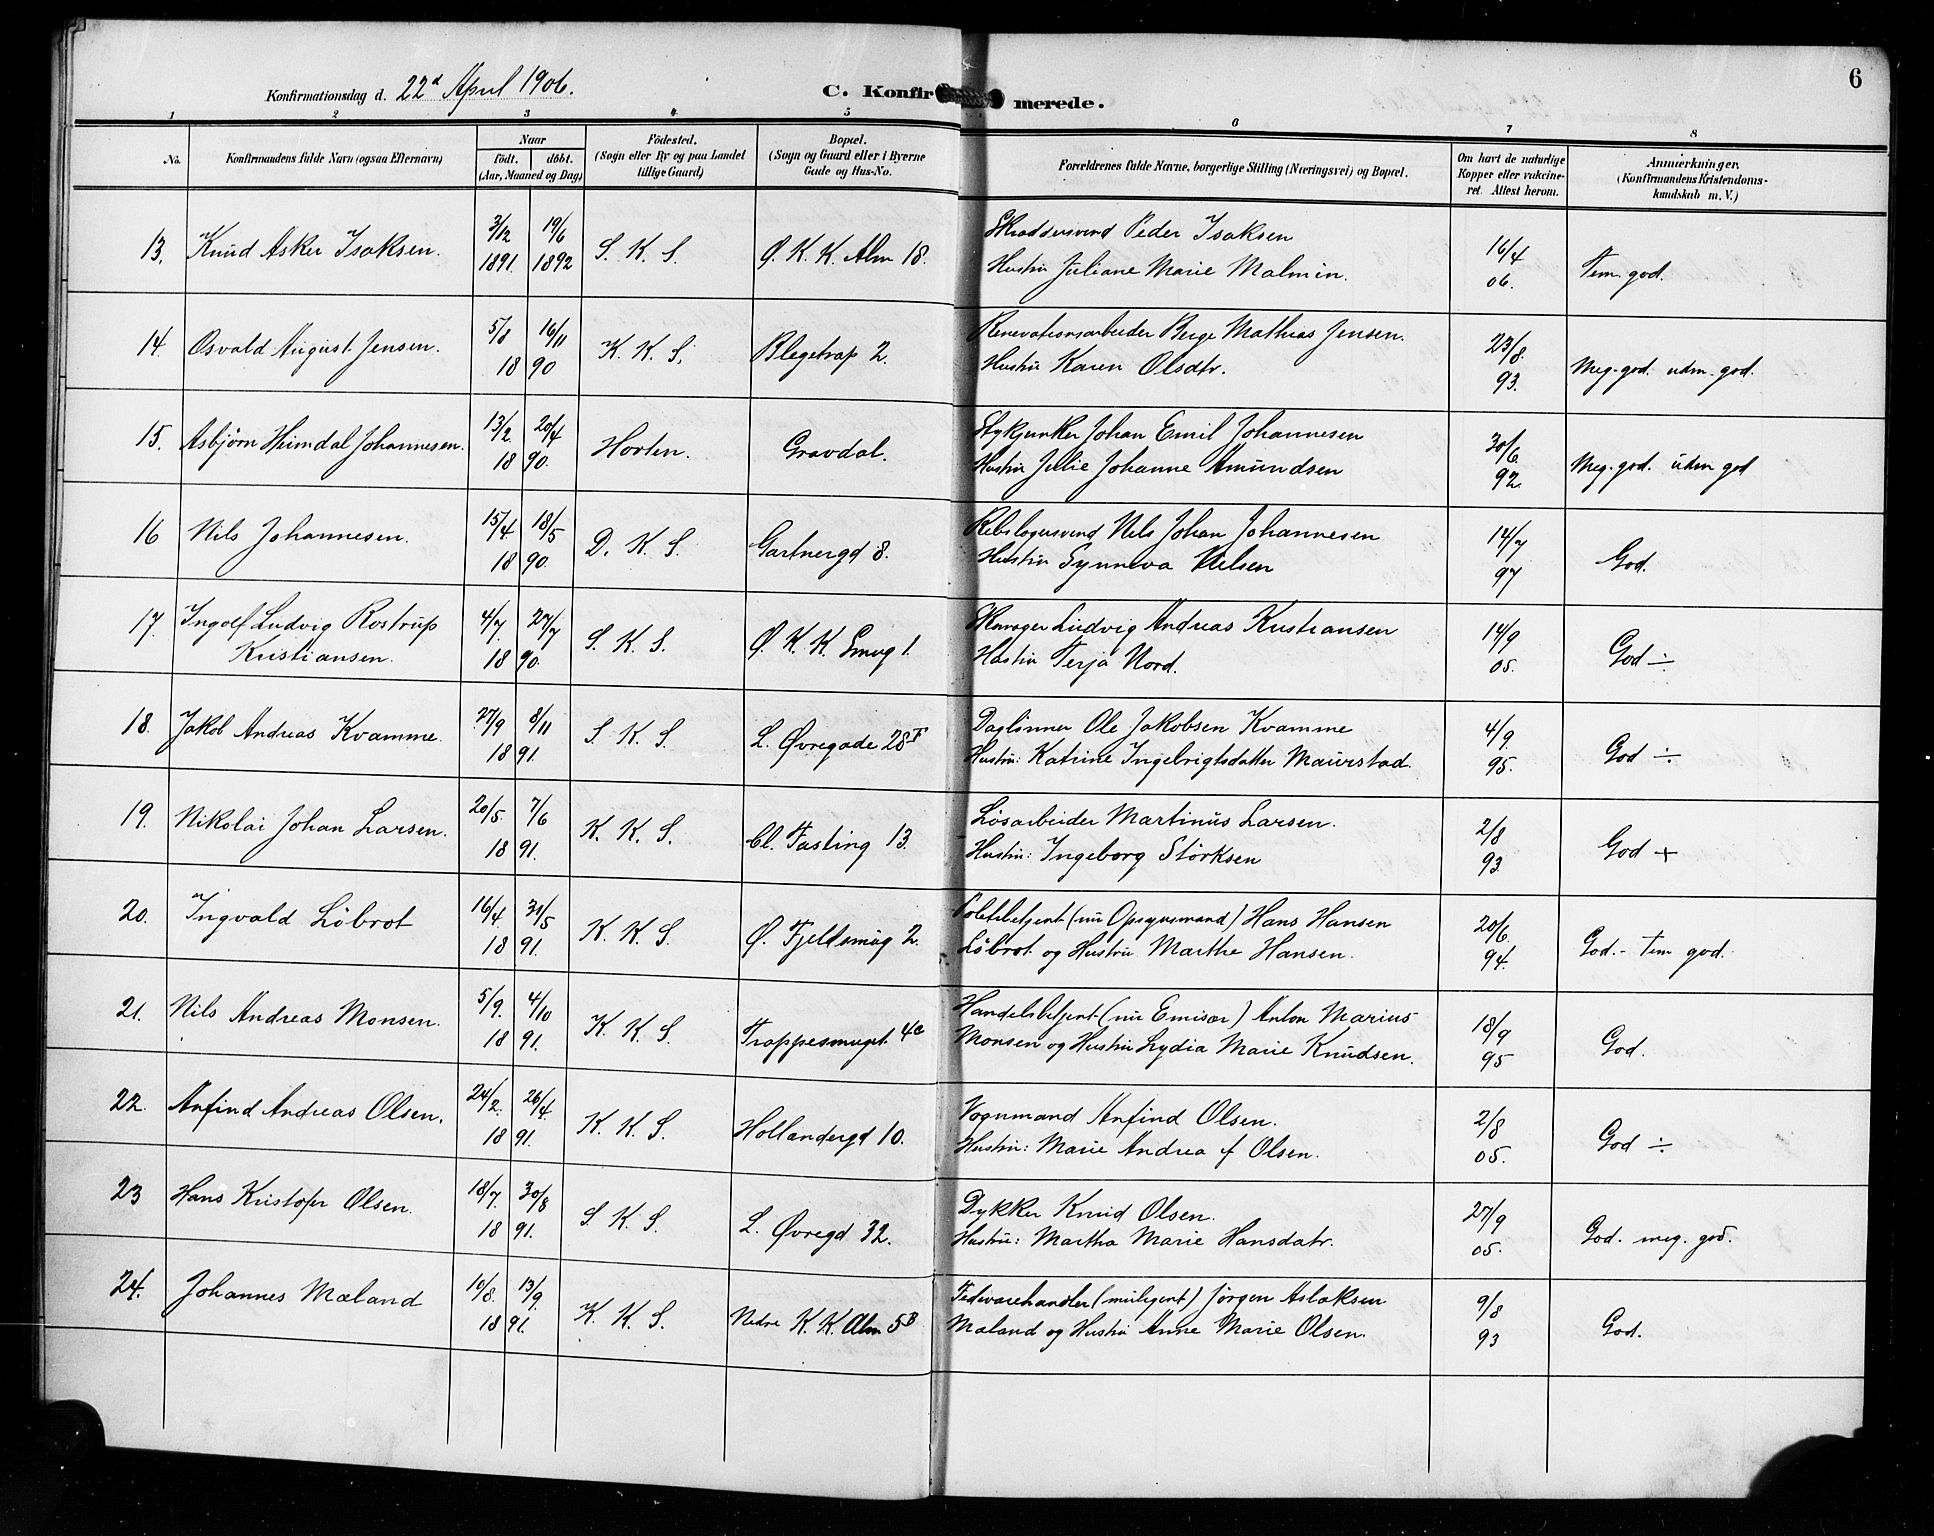 Konfirmationsdag d. 22d April 1906.
C. Konfirmerede.
6
1 2 3 4 5 6 7 8
No. Konfirmandens fulde Navn (ogsaa Efternavn) Naar født. døbt. (Aar, Maaned og Dag) Fødested. (Sogn eller By og paa Landet tillige Gaard) Bopæl. (Sogn og Gaard eller i Byerne Gade og Hus-No. Forældrenes fulde Navne, borgerlige Stilling (Næringsvei) og Bopæl. Om havt de naturlige Kopper eller vakcineret. Attest herom. Anmærkninger. (Konfirmandens Kristendomskundskab m. V.)
13. Knud Asker Isaksen. 3/12 1891. 19/6 1892 S. K. S. Ø. K. K. Alm 18. Skræddersvend Peder Isaksen
Hustru Juliane Marie Malmin. 16/4 06. Tem. god.
14. Osvald August Jensen. 5/8 16/11 1890 K. K. S. Blegetrap 2. Renovationsarbeider Berge Mathias Jensen.
Hustru Karen Olsdtr. 23/8. 93. Meg. god. udm. god.
15. Asbjørn Heimdal Johannesen. 13/2 20/4 1890. Horten. Gravdal. Stykjunker Johan Emil Johannesen
Hustru Jellie Johanne Amundsen 30/6. 92. Meg. god. udm god
16 Nils Johannesen. 15/4 18/5 1890. D. K. S. Gartnergd 8. Rebslagersvend Nils Johan Johannesen
Hustru Synneva Nielsen 14/7 97 God.
17. Ingolf Ludvig Rostrup Kristiansen. 4/7 27/7 1890. S. K. S. Ø. K. K. Smug 1. Skomager Ludvig Andreas Kristiansen
Hustru Terja Nord. 14/9 05. God ÷
18. Jakob Andreas Kvamme. 27/9 8/11 1891. S. K. S. L. Øvregade 28 Daglønner Ole Jakobsen Kvamme
Hustru: Katrine Ingebrigtsdatter Maurstad. 4/9. 95. God ÷
19. Nikolai Johan Larsen. 20/5 7/6 1891. K. K. S. Cl. Fasting 13. Løsarbeider Martinus Larsen.
Hustru: Ingeborg Størksen 2/8 93. God +
20. Ingvald Löbrot 16/4 31/5 1891. K. K. S. Ø. Fjeldsmug 2. Politibetjent (nu Opsynsmand) Hans Hansen
Löbrot og Hustru Marthe Hansen. 20/6. 94. God. - Tem god.
21. Nils Andreas Monsen. 5/9. 4/10 1891. K. K. S. Trappesmuget 4a Handelsbetjent (nu Emisær) Anton Marius
Monsen og Hustru Lydia Marie Knudsen. 18/9 95 God.
22. Anfind Andreas Olsen. 24/2. 26/4. 1891. K. K. S. Hollandergd 10. Vognmand Anfind Olsen.
Hustru: Marie Andrea f Olsen. 2/8 05. God ÷
23 Hans Kristofer Olsen. 18/7. 30/8 1891. S. K. S. L. Øvregd 32. Dykker Knud Olsen.
Hustru: Martha Marie Hansdatr. 27/9 05. God. meg. god.
24. Johannes Mæland 10/8. 13/9. 1891. K. K. S. Nedre K. K. Alm 5B Fedevarehandler Jørgen Aslaksen
Mæland og Hustru Anne Marie Olsen. 9/8 93 God.